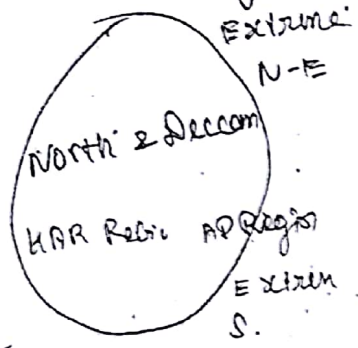 Extreme
N-E
North & Deccan
HAR Regi AP Region
Extrem
S.